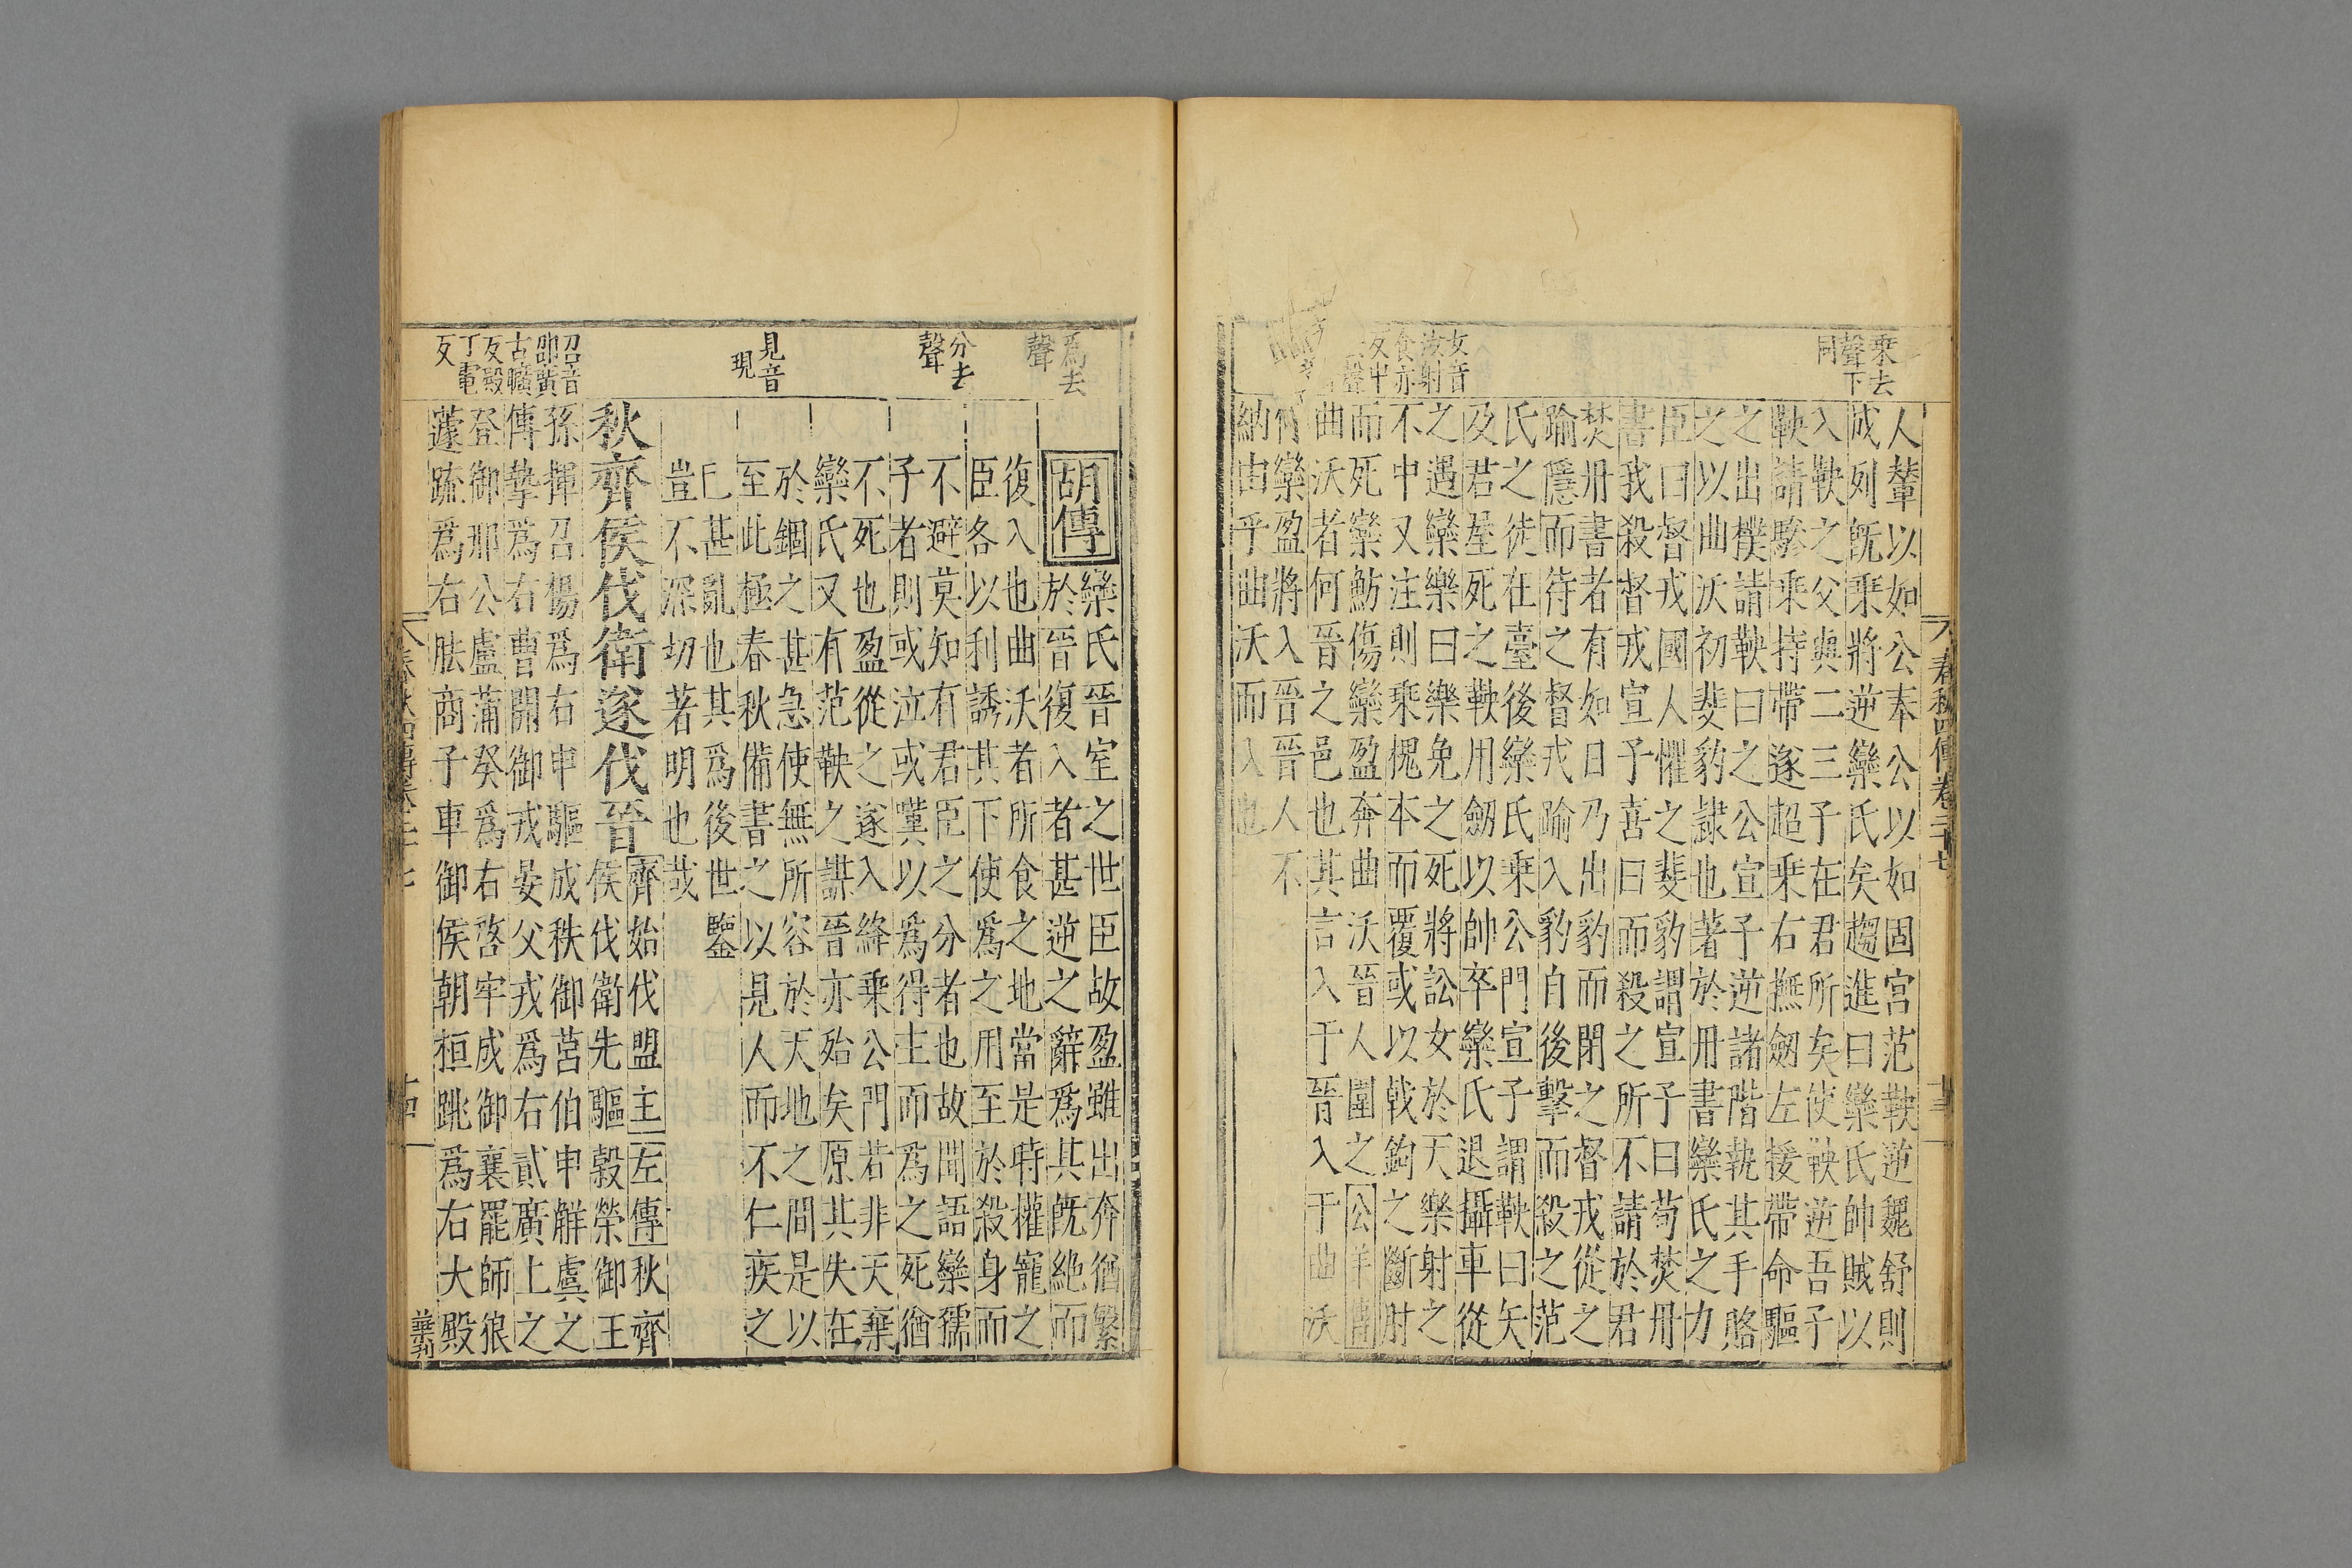 人輦以如公奉公以如固宮范鞅逆魏舒則
成列旣乘將逆欒氏矣趨進曰欒氏帥賊以
入鞅之父與二三子在君所矣使鞅逆吾子
鞅請驂乘持帶遂超乘右撫劒左援帶命驅
之出僕請鞅曰之公宣子逆諸階執其手賂
之以曲沃初斐豹隷也著於丹書欒氏之力
臣曰督戎國人懼之斐豹謂宣子曰苟焚丹
書我殺督戎宣子喜曰而殺之所不請於君
焚丹書者有如日乃出豹而閉之督戎從之
踰隱而待之督戎踰入豹自後擊而殺之范
氏之徒在臺後欒氏乘公門宣子謂鞅曰矢
及君屋死之鞅用劒以帥卒欒氏退攝車從
之遇欒樂曰樂免之死將訟女於天樂射之
不中又注則乘槐本而覆或以戟鉤之斷肘
而死欒魴傷欒盈奔曲沃晉人圍之公羊傳
曲沃者何晉之邑也其言入于晉入于曲沃
何欒盈將入晉晉人不
納由乎曲沃而入也
乘去
聲下
同
女音
汝射
食亦
反中
聲
春秋四傳卷二十七
十三
爲去
聲
分去
聲
見音
現
召音
邵廣
古曠
反殿
丁電
反
胡傳
欒氏晉室之世臣故盈雖出奔猶繫
於晉復入者甚逆之辭爲其旣絶而
復入也曲沃者所食之地當是時權寵之
臣各以利誘其下使爲之用至於殺身而
不避莫知有君臣之分者也故聞語欒孺
子者則或泣或嘆以爲得主而爲之死猶
不死也盈從之遂入絳乘公門若非天棄
欒氏又有范鞅之謀晉亦殆矣原其失在
於錮之甚急使無所容於天地之間是以
至此極春秋備書之以見人而不仁疾之
已甚亂也其爲後世鑒
豈不深切著明也哉
秋齊侯伐衛遂伐晉
齊始伐盟主左傳秋齊
侯伐衛先驅榖榮御王
孫揮召揚爲右申驅成秩御莒伯申鮮虞之
傳摯爲右曹開御戎晏父戎爲右貳廣上之
登御邢公盧蒲癸爲右啓牢成御襄罷師狼
蘧疏爲右胠商子車御侯朝桓跳爲右大殿
春秋四傳卷二十七
十四
華刊